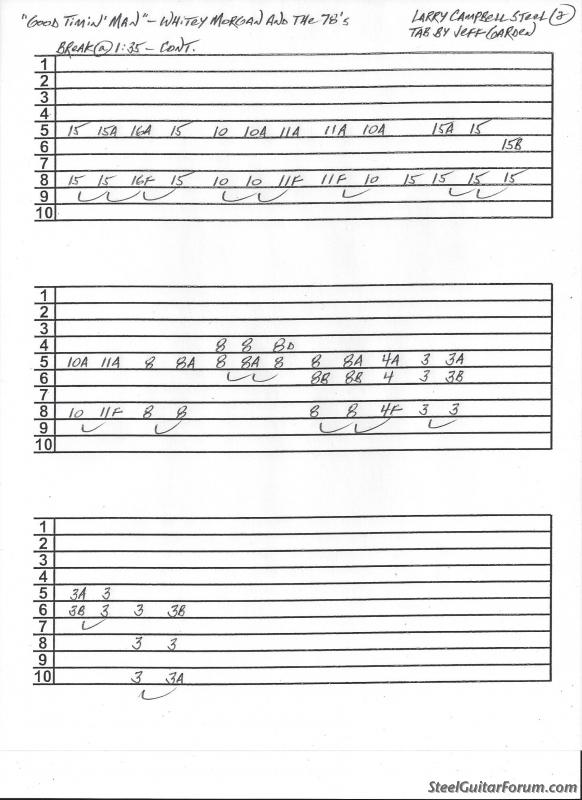 "GOOD TIMIN' MAN" - WHITEY MORGAN AND THE 78's
LARRY CAMPBELL STEEL (2)
TAB BY JEFF GARDEN
BREAK @ 1:35 - CONT.
1
2
3
4
5 15 15A 16A 15 10 10A 11A 11A 10A 15A 15
6 15B
7
8 15 15 16F 15 10 10 11F 11F 10 15 15 15 15
9
10
1
2
3
4 8 8 8D
5 10A 11A 8 8A 8 8A 8 8 8A 4A 3 3A
6 8B 8B 4 3 3B
7
8 10 11F 8 8 8 8 4F 3 3
9
10
1
2
3
4
5 3A 3
6 3B 3 3 3B
7
8 3 3
9
10 3 3A
SteelGuitarForum.com